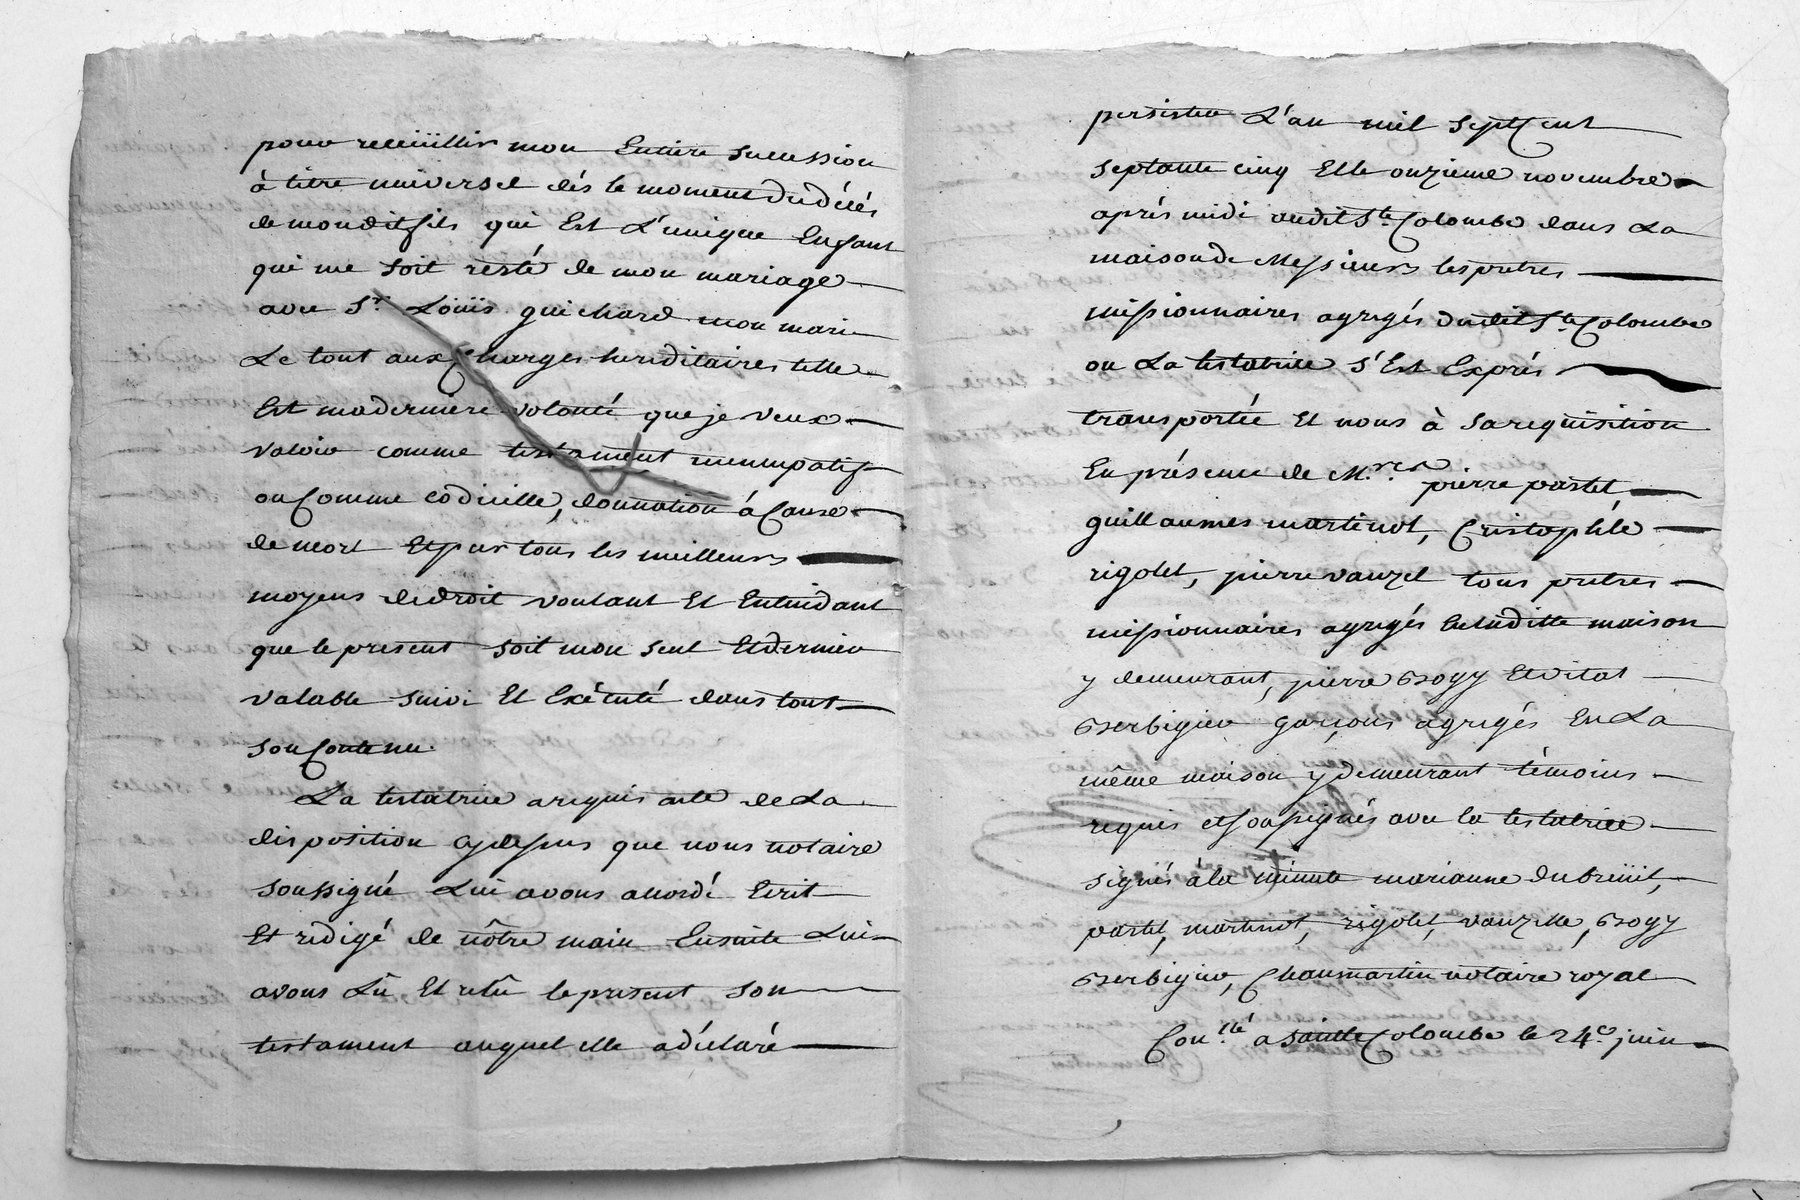 pour receüillir mon Entiere succession
à titre universel dés le moment du décés
de monditfils qui Est L'unique Enfant
qui me soit resté de mon mariage
avec Sr. Loüis guichard mon mari
Le tout aux Charges hereditaires telle
Est maderniere volonté que je veux
valoir comme testament nuncupatif
ou Comme codicille, donnation à Cause
de mort Et par tous les meilleurs
moyens de droit voulant Et Entendant
que le present soit mon seul Et dernier
valable suivi Et Exécuté dans tout
son Contenu.
La testatrice a requis acte de La
disposition cy dessus que nous notaire
soussigné Lui avons accordé Ecrit
Et redigé de nôtre main Ensuite Lui
avons Lû Et relû le present son
testament auquel elle a déclaré
persister L'an mil sept Cent
septante cinq Et le onzieme novembre
aprés midi audit Ste. Colombe dans La
maison de Messieurs les pretres
missionnaires agregés dudit Ste. Colombe
ou La testatrice s'Est Exprés
transportée Et nous à sa requisition
En présence de M.rs pierre pastel,
guillaumes martinot, Cristophle
rigolet, pierre vanzel tous pretres
missionnaires agregés En laditte maison
y demeurant, pierre Bogy Et vital
Berbigier garçons agregés En La
même maison y demeurant témoins
requis et soussignés avec la testatrice
signés à la minute marianne dubreüit,
pastel, martinot, rigolet, vanzelle, Bogy
Berbigier, Chaumartin notaire royal
Con.llé a sainte Colombe le 24e. juin